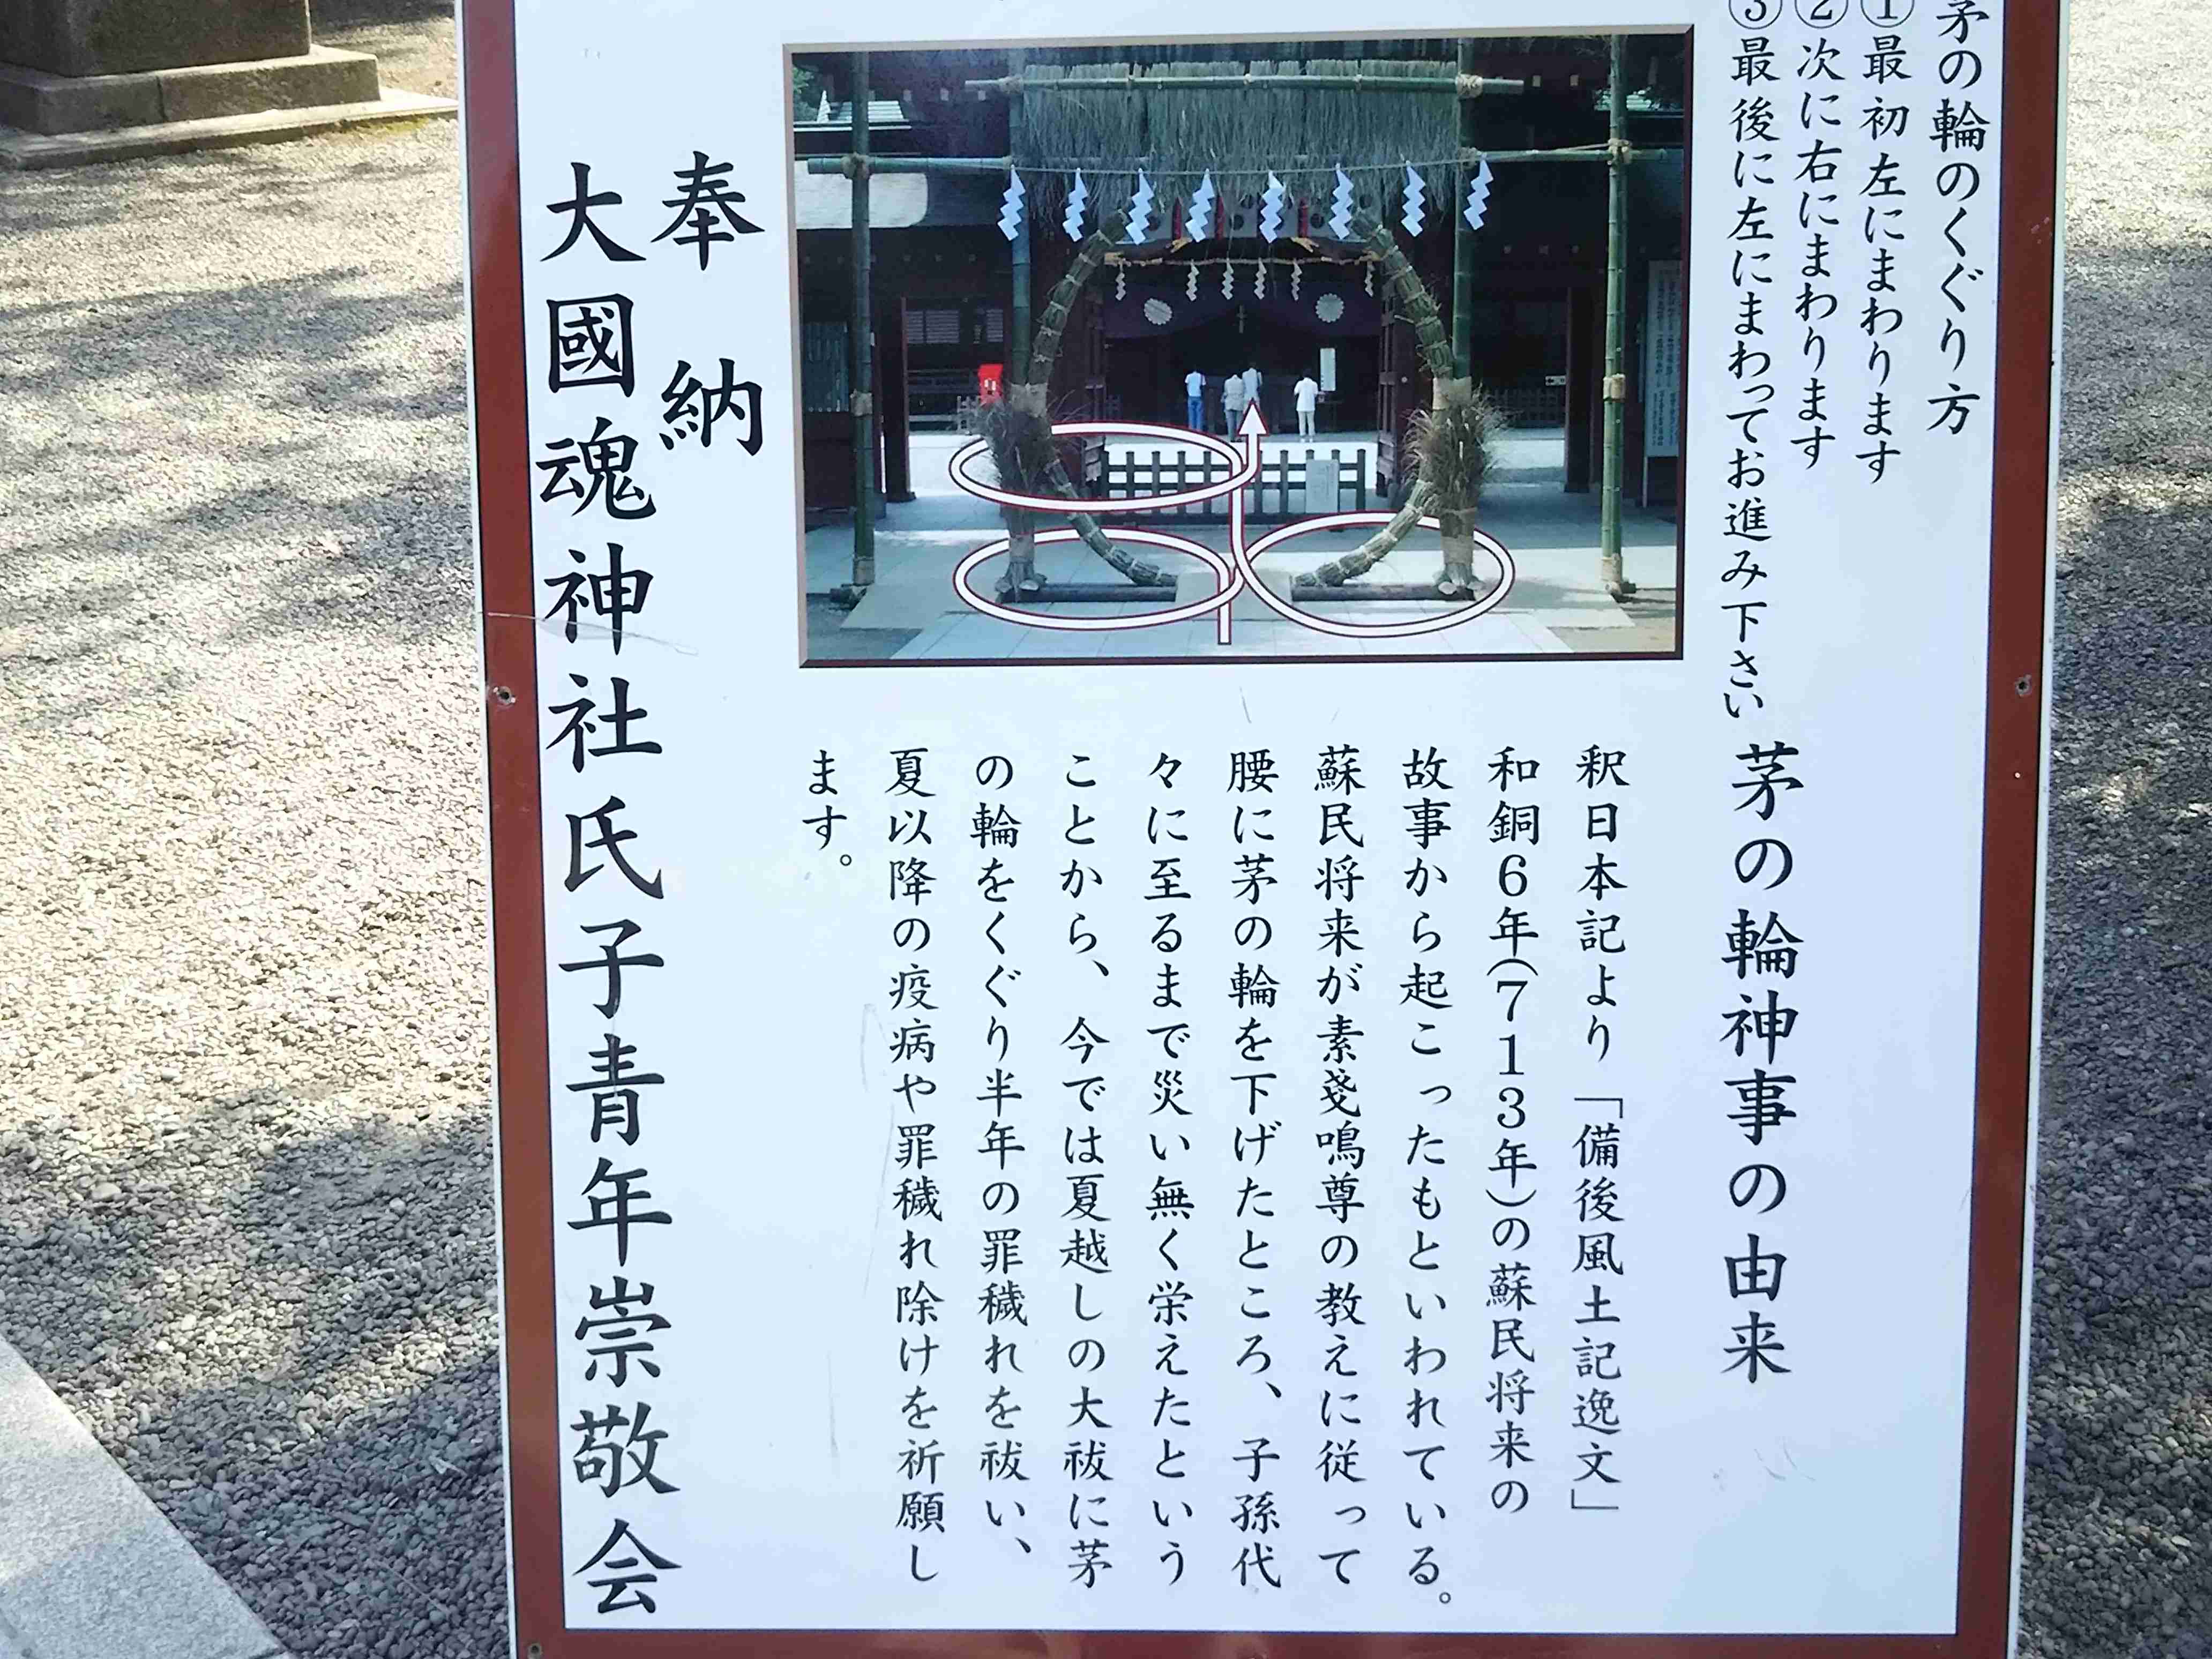 茅の輪のくぐり方
①最初左にまわります
②次に右にまわります
③最後に左にまわってお進み下さい
茅の輪神事の由来
釈日本記より「備後風土記逸文」
和銅6年(713年)の蘇民将来の
故事から起こったもといわれている。
蘇民将来が素戔鳴尊の教えに従って
腰に茅の輪を下げたところ、子孫代
々に至るまで災い無く栄えたという
ことから、今では夏越しの大祓に茅
の輪をくぐり半年の罪穢れを祓い、
夏以降の疫病や罪穢れ除けを祈願し
ます。
奉納
大國魂神社氏子青年崇敬会